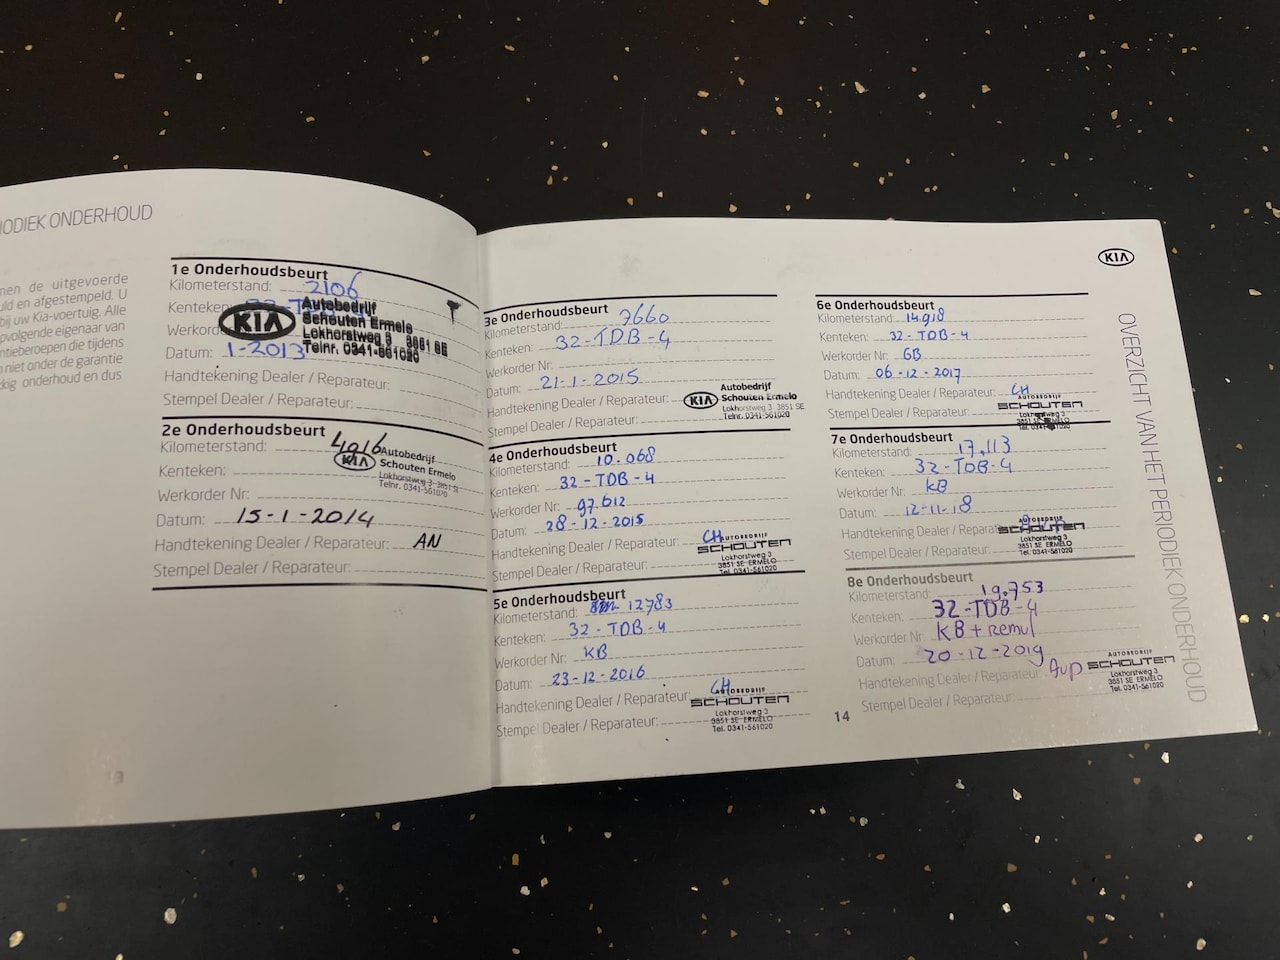 IODIEK ONDERHOUD
nen de uitgevoerde
uld en afgestempeld. U
bij uw Kia-voertuig. Alle
pvolgende eigenaar van
ntieberoepen die tijdens
n niet onder de garantie
kig onderhoud en dus
1e Onderhoudsbeurt
Kilometerstand: 2106
Kenteken:
Werkord
Datum: 1-2013
KIA
Autobedrijf
Schouten Ermelo
Lokhorstweg 3 3851 SE
Telnr. 0341-561020
Handtekening Dealer / Reparateur:
Stempel Dealer / Reparateur:
2e Onderhoudsbeurt
Kilometerstand: 4916
Kenteken:
KIA
Autobedrijf
Schouten Ermelo
Lokhorstweg 3
Telnr. 0341-561020
Werkorder Nr:
Datum: 15-1-2014
Handtekening Dealer / Reparateur: AN
Stempel Dealer / Reparateur:
13
3e Onderhoudsbeurt
Kilometerstand: 7660
Kenteken: 32-TDB-4
Werkorder Nr:
Datum: 21-1-2015
Handtekening Dealer / Reparateur:
Stempel Dealer / Reparateur:
KIA
Autobedrijf
Schouten Ermelo
Lokhorstweg 3 3851 SE
Telnr. 0341-561020
4e Onderhoudsbeurt
Kilometerstand: 10.068
Kenteken: 32-TDB-4
Werkorder Nr: 97.612
Datum: 28-12-2015
Handtekening Dealer / Reparateur: CH
Stempel Dealer / Reparateur:
AUTOBEDRIJF
SCHOUTEN
Lokhorstweg 3
3851 SE ERMELO
Tel. 0341-561020
5e Onderhoudsbeurt
Kilometerstand: 12783
Kenteken: 32-TDB-4
Werkorder Nr: KB
Datum: 23-12-2016
Handtekening Dealer / Reparateur: CH
Stempel Dealer / Reparateur:
AUTOBEDRIJF
SCHOUTEN
Lokhorstweg 3
3851 SE ERMELO
Tel. 0341-561020
KIA
6e Onderhoudsbeurt
Kilometerstand: 14.918
Kenteken: 32-TDB-4
Werkorder Nr: GB
Datum: 06-12-2017
Handtekening Dealer / Reparateur: CH
Stempel Dealer / Reparateur:
AUTOBEDRIJF
SCHOUTEN
Lokhorstweg 3
3851 SE ERMELO
Tel. 0341-561020
7e Onderhoudsbeurt
Kilometerstand: 17.113
Kenteken: 32-TDB-4
Werkorder Nr: KB
Datum: 12-11-18
Handtekening Dealer / Repara
Stempel Dealer / Reparateur:
AUTOBEDRIJF
SCHOUTEN
Lokhorstweg 3
3851 SE ERMELO
Tel. 0341-561020
8e Onderhoudsbeurt
Kilometerstand: 19.753
Kenteken: 32-TDB-4
Werkorder Nr KB + remvl
Datum: 20-12-2019
Handtekening Dealer / Reparateur
Stempel Dealer / Reparateur:
AUTOBEDRIJF
SCHOUTEN
Lokhorstweg 3
3851 SE ERMELO
Tel. 0341-561020
14
OVERZICHT VAN HET PERIODIEK ONDERHOUD